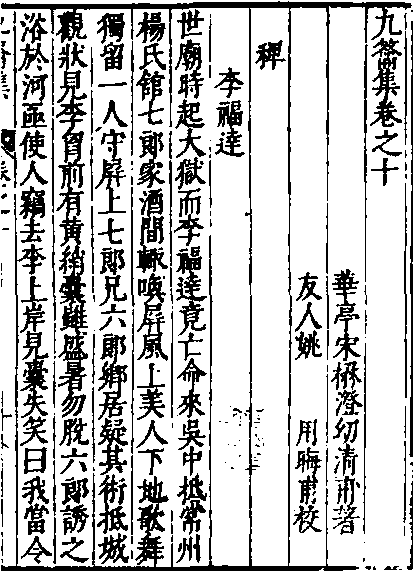 九籥集卷之十
華亭宋楙澄幼清甫著
友人姚　用晦甫校
稗
李福達
世廟時起大獄而李福達竟亡命來吳中抵常州
楊氏館七郎家酒間輙喚屏風上美人下地歌舞
獨留一人守屏上七郎兄六郎鄉居疑其術抵城
觀狀見李胷前有黄綃囊雖盛暑勿脫六郎誘之
浴於河亟使人竊去李上岸見囊失笑曰我當今